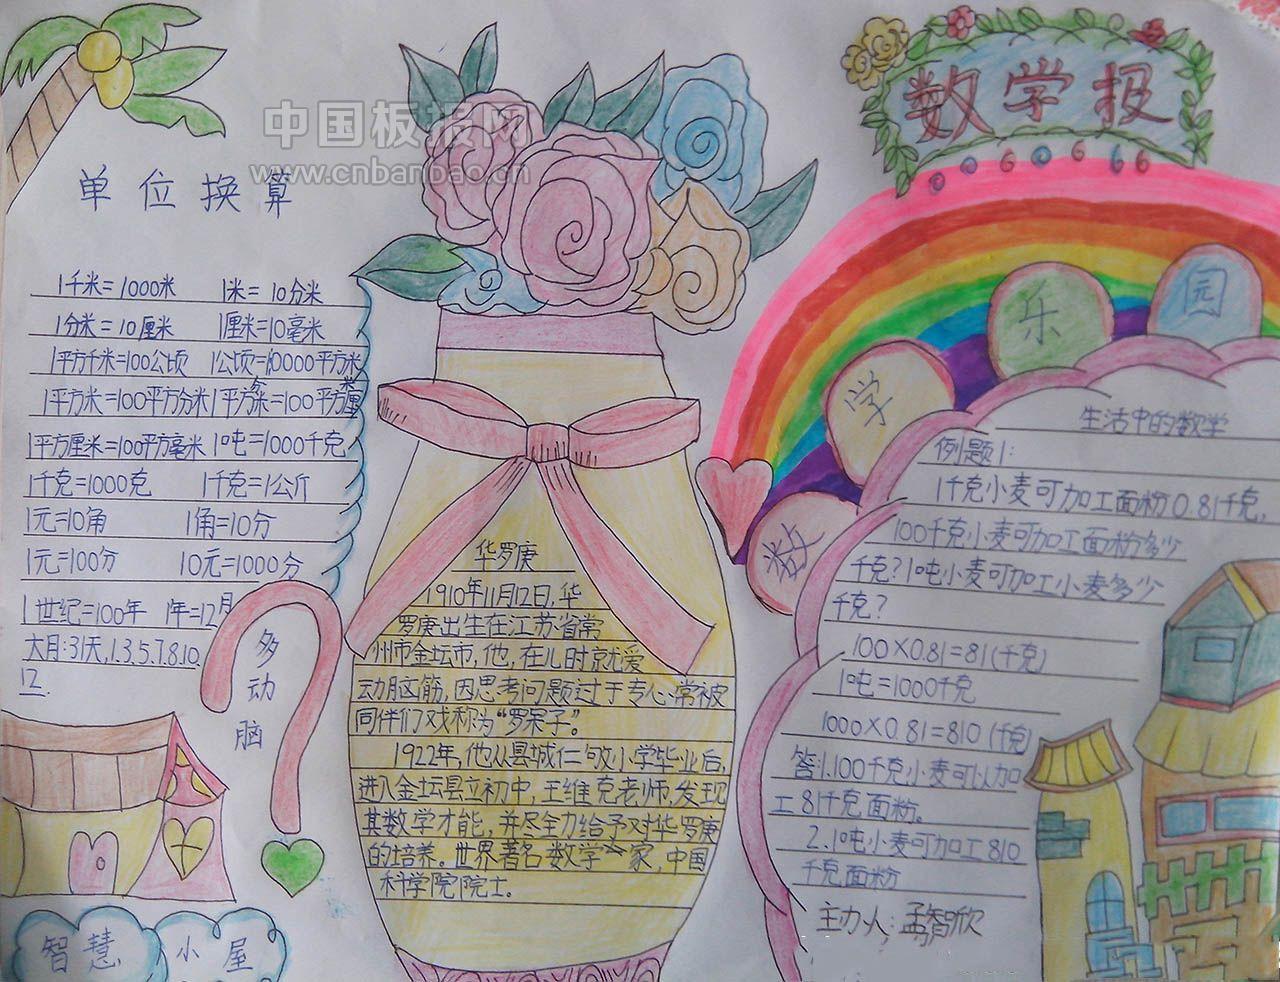 中国板报网
www.cnbanbao.cn
数学报
单位换算
1千米=1000米 1米=10分米
1分米=10厘米 1厘米=10毫米
1平方千米=100公顷 1公顷=10000平方米
1平方米=100平方分米 1平方分米=100平方厘米
1平方厘米=100平方毫米 1吨=1000千克
1千克=1000克 1千克=1公斤
1元=10角 1角=10分
1元=100分 10元=1000分
1世纪=100年 1年=12月
大月:31天,1.3.5.7.8.10.
12.
多动脑
智慧小屋
华罗庚
1910年11月12日,华
罗庚出生在江苏省常
州市金坛市,他,在儿时就爱
动脑筋,因思考问题过于专心常被
同伴们戏称为“罗呆子”。
1922年,他从县城仁劬小学毕业后,
进入金坛县立初中,王维克老师,发现
其数学才能,并尽全力给予对华罗庚
的培养。世界著名数学家,中国
科学院院士。
数学乐园
生活中的数学
例题1:
1千克小麦可加工面粉0.81千克,
100千克小麦可加工面粉多少
千克?1吨小麦可加工小麦多少
千克?
100×0.81=81(千克)
1吨=1000千克
1000×0.81=810(千克)
答:1.100千克小麦可以加
工81千克面粉。
2.1吨小麦可加工810
千克面粉
主办人:孟智欣